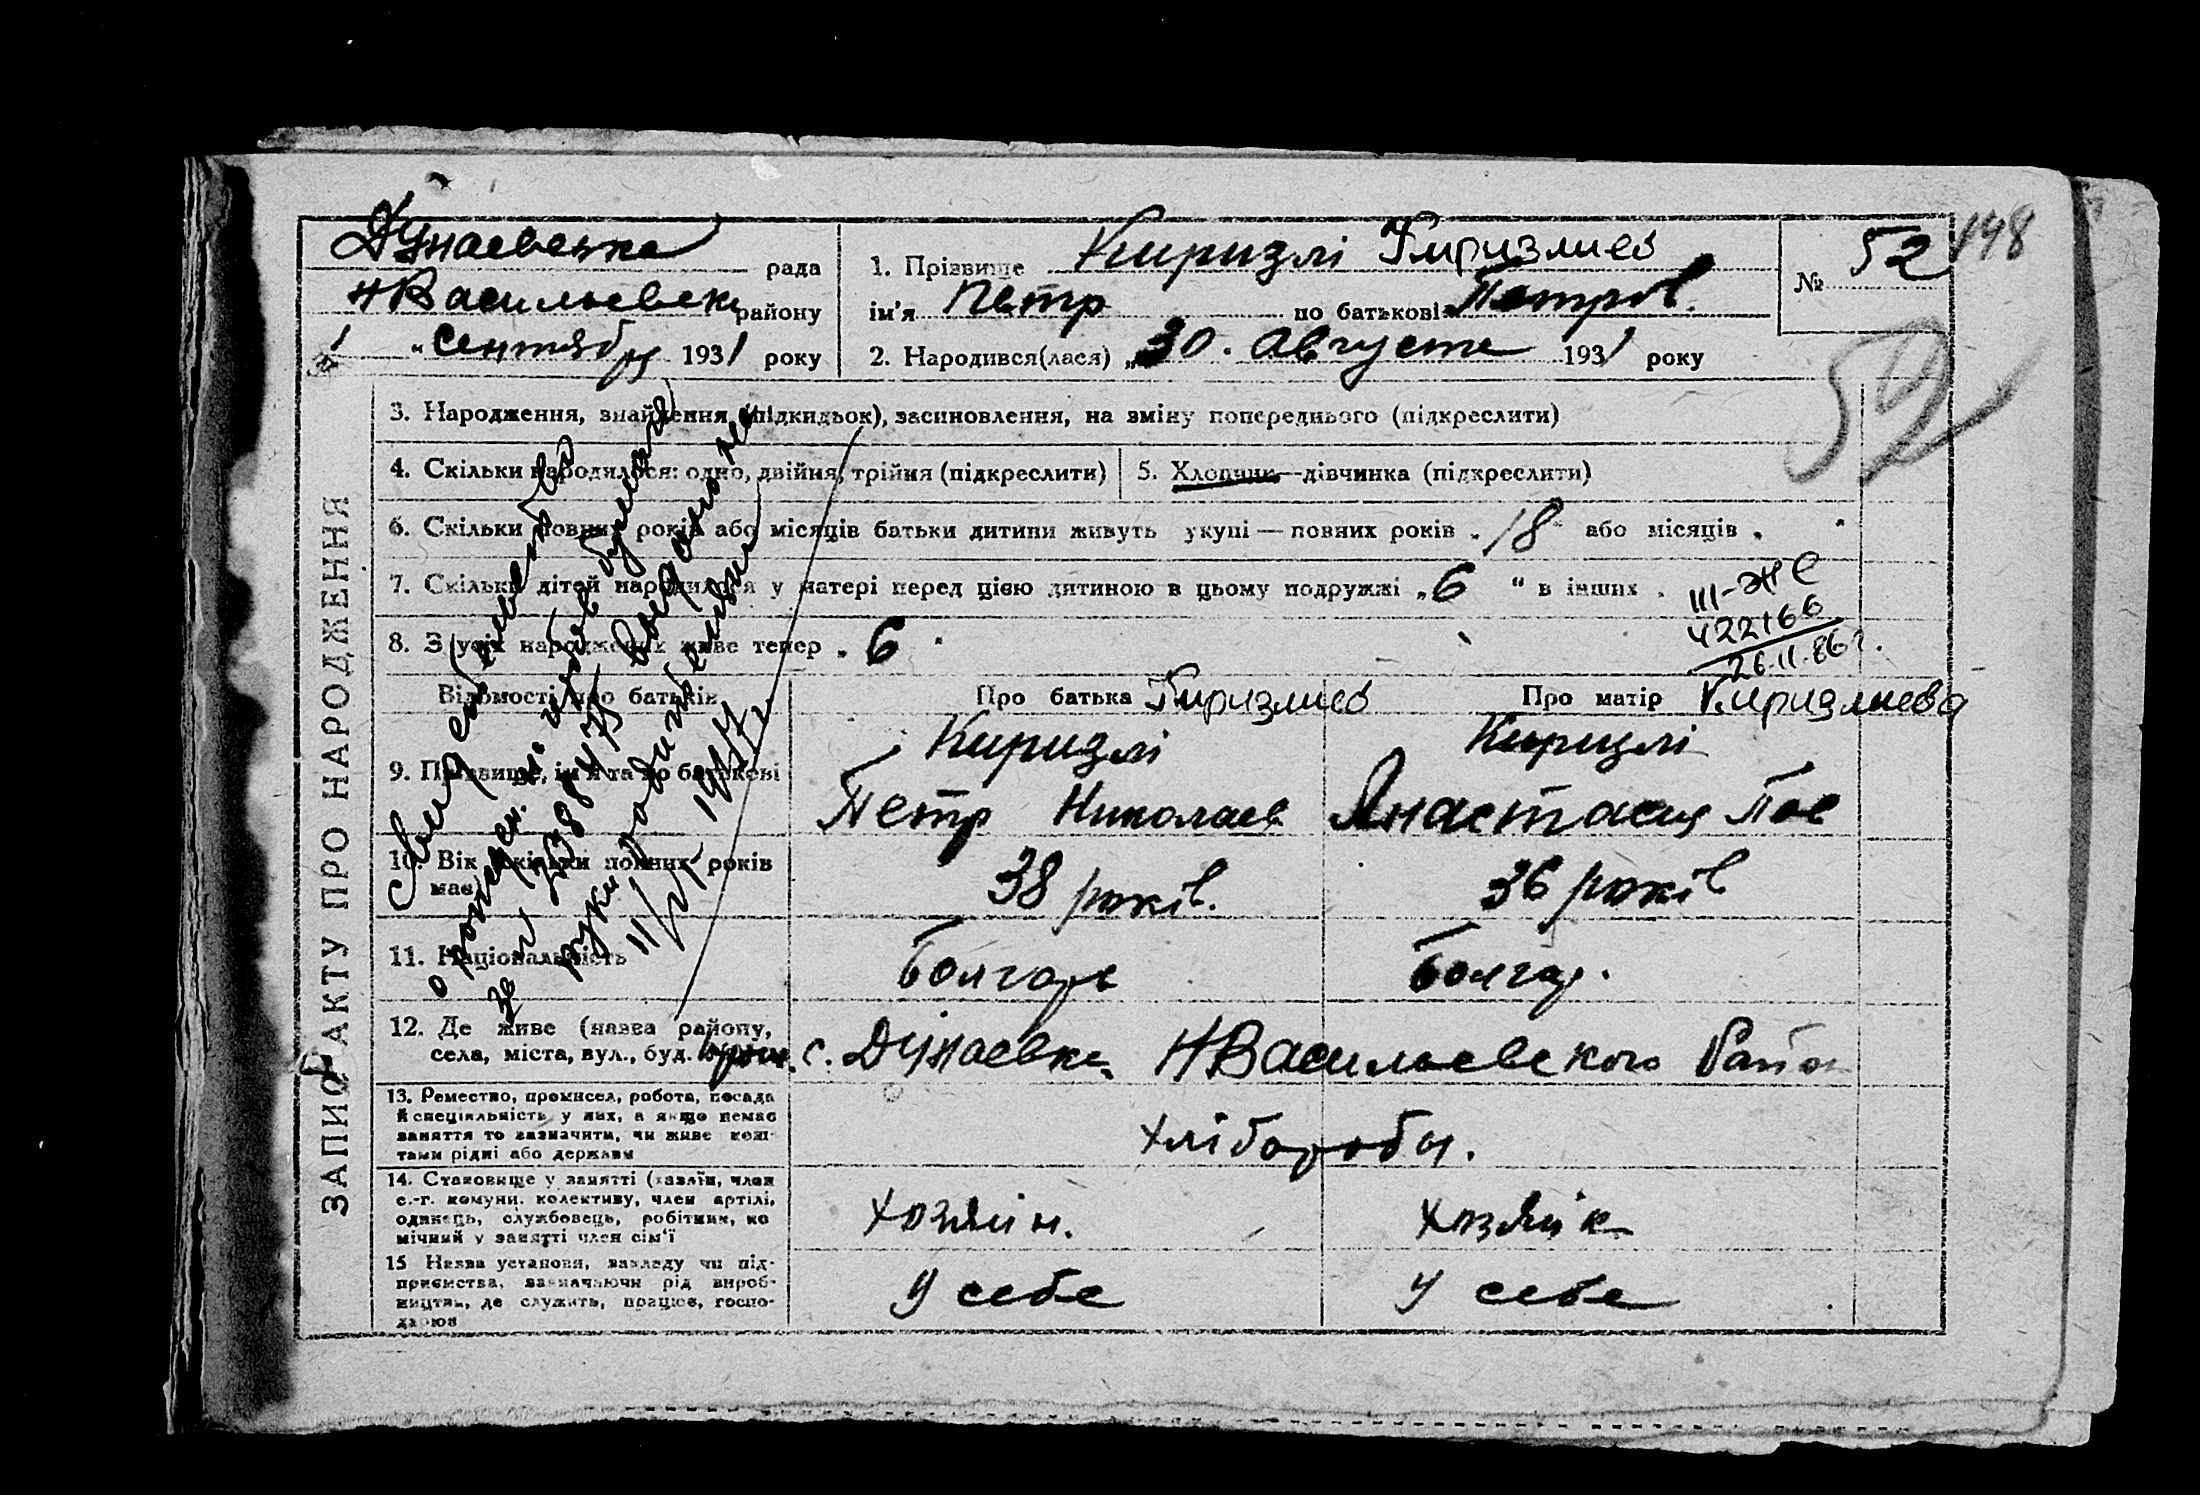 Дунаевська рада
НВасильевск району
"1" сентября 1931 року
1. Прізвище Киризлі Киризлиев
ім'я Петр по батькові Петров.
№ 52
148
2. Народився(лася) „30. Августа 1931 року
52
ЗАПИС АКТУ ПРО НАРОДЖЕННЯ
3. Народження, знайдення (підкидьок), засиновлення, на зміну попереднього (підкреслити)
4. Скільки народилося: одно, двійня, трійня (підкреслити)
5. Хлопчик—дівчинка (підкреслити)
6. Скільки повних років або місяців батьки дитини живуть укупі — повних років „18" або місяців „ "
7. Скільки дітей народилося у матері перед цією дитиною в цьому подружжі „6 " в інших „
III-ЖС
422166
26.11.86г.
8. З усіх народжених живе тепер „ 6 "
Відомості про батьків
Про батька Киризлиев
Про матір Киризлиева
9. Прізвище, ім'я та по батькові
Киризлі
Петр Николаев
Киризлі
Анастасия Пав
10. Вік (скільки повних років має)
38 років.
36 років
11. Національність
Болгарь
Болгар.
12. Де живе (назва району,
села, міста, вул., буд.
с. Дунаевка НВасильевского Район
13. Ремество, промисел, робота, посада
й спеціяльність у них, а якщо немає
заняття то зазначити, чи живе кош-
тами рідні або держави
хлібороби.
14. Становище у занятті (хазяїн, член
с.-г. комуни, колективу, член артілі,
одинець, службовець, робітник, по
мічний у занятті член сім'ї
хозяин.
хозяйк
15 Назва установи, закладу чи під-
приємства, зазначаючи рід вироб-
ництва, де служить, працює, госпо-
дарює
У себе
У себе
Свидетельство
о рожден.
выдано на
руки родительнице